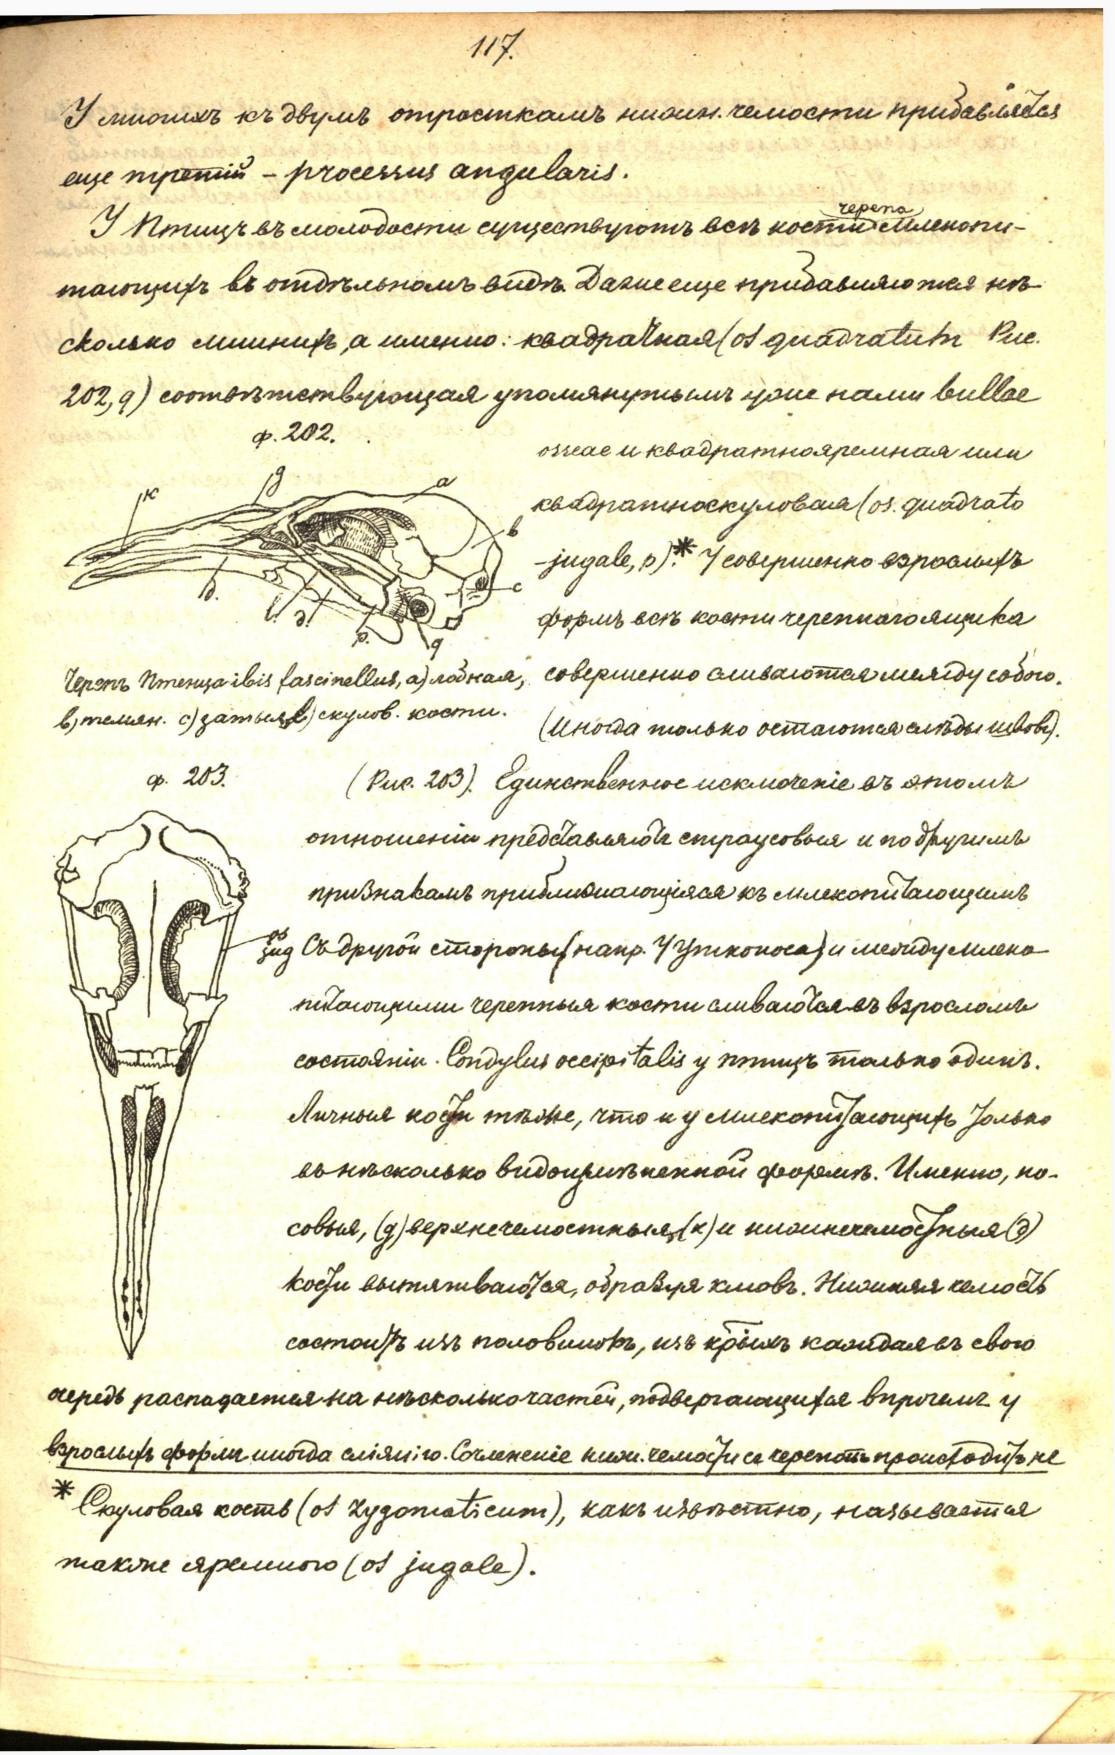 117.
У многихъ къ двумъ отросткамъ нижн. челюсти прибавляется
еще третій – processus angularis.
У Птицъ въ молодости существуютъ всѣ кости черепа млекопи-
тающихъ въ отдѣльномъ видѣ. Даже еще прибавляются нѣ-
сколько лишнихъ, а именно: квадратная (os quadratum Рис.
202, q) соотвѣтствующая упомянутымъ уже нами bullae
ф. 202.
osseae и квадратнояремная или
квадратноскуловая (os. quadrato
jugale, p).* У совершенно взрослыхъ
формъ всѣ кости черепнаго ящика
совершенно сливаются между собою.
(Иногда только остаются слѣды швовъ).
к g a b c d. l. э. p. q
Черепъ птенца ibis fascinellus, a) лобная,
b) темян. c) затыл. l) скулов. кости.
ф. 203.
(Рис. 203). Единственное исключеніе въ этомъ
отношеніи представляютъ страусовыя и по другимъ
признакамъ приближающіяся къ млекопитающимъ
os
zyg
Съ другой стороны (напр. У Утконоса) и между млеко
питающими черепныя кости сливаются въ взросломъ
состояніи. Condylus occipitalis у птицъ только одинъ.
Личныя кости тѣ же, что и у млекопитающихъ только
въ нѣсколько видоизмѣненной формѣ. Именно, но-
совыя, (g) верхнечелюстныя, (к) и нижнечелюстныя (д)
кости вытягиваются, образуя клювъ. Нижняя челюсть
состоитъ изъ половинокъ, изъ крыхъ каждая въ свою
очередь распадается на нѣсколько частей, подвергающихся впрочемъ у
взрослыхъ формъ иногда сліянію. Сочлененіе нижн. челюсти съ черепомъ происходитъ не
* Скуловая кость (os zygomaticum), какъ извѣстно, называется
также яремною (os jugale).